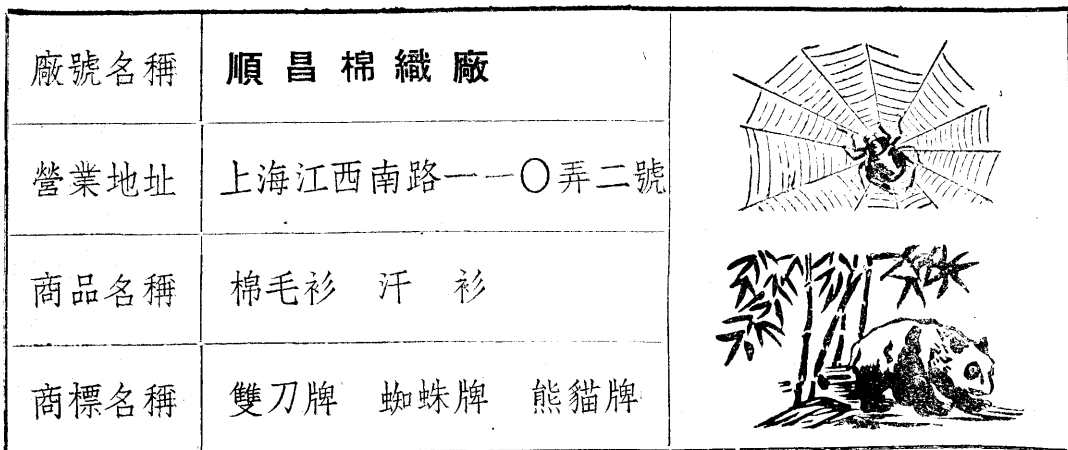 廠號名稱 順昌棉織廠
營業地址 上海江西南路一一〇弄二號
商品名稱 棉毛衫 汗衫
商標名稱 雙刀牌 蜘蛛牌 熊貓牌